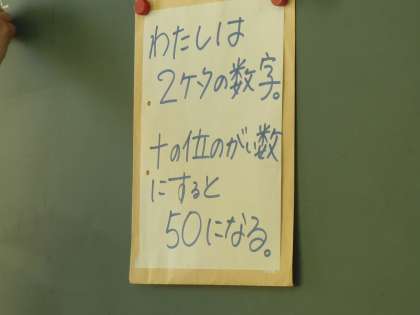 わたしは
2ケタの数字。
十の位のがい数
にすると
50になる。